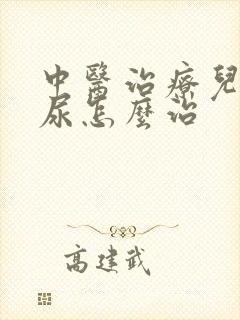 中醫治療兒
尿怎麼治
高建武